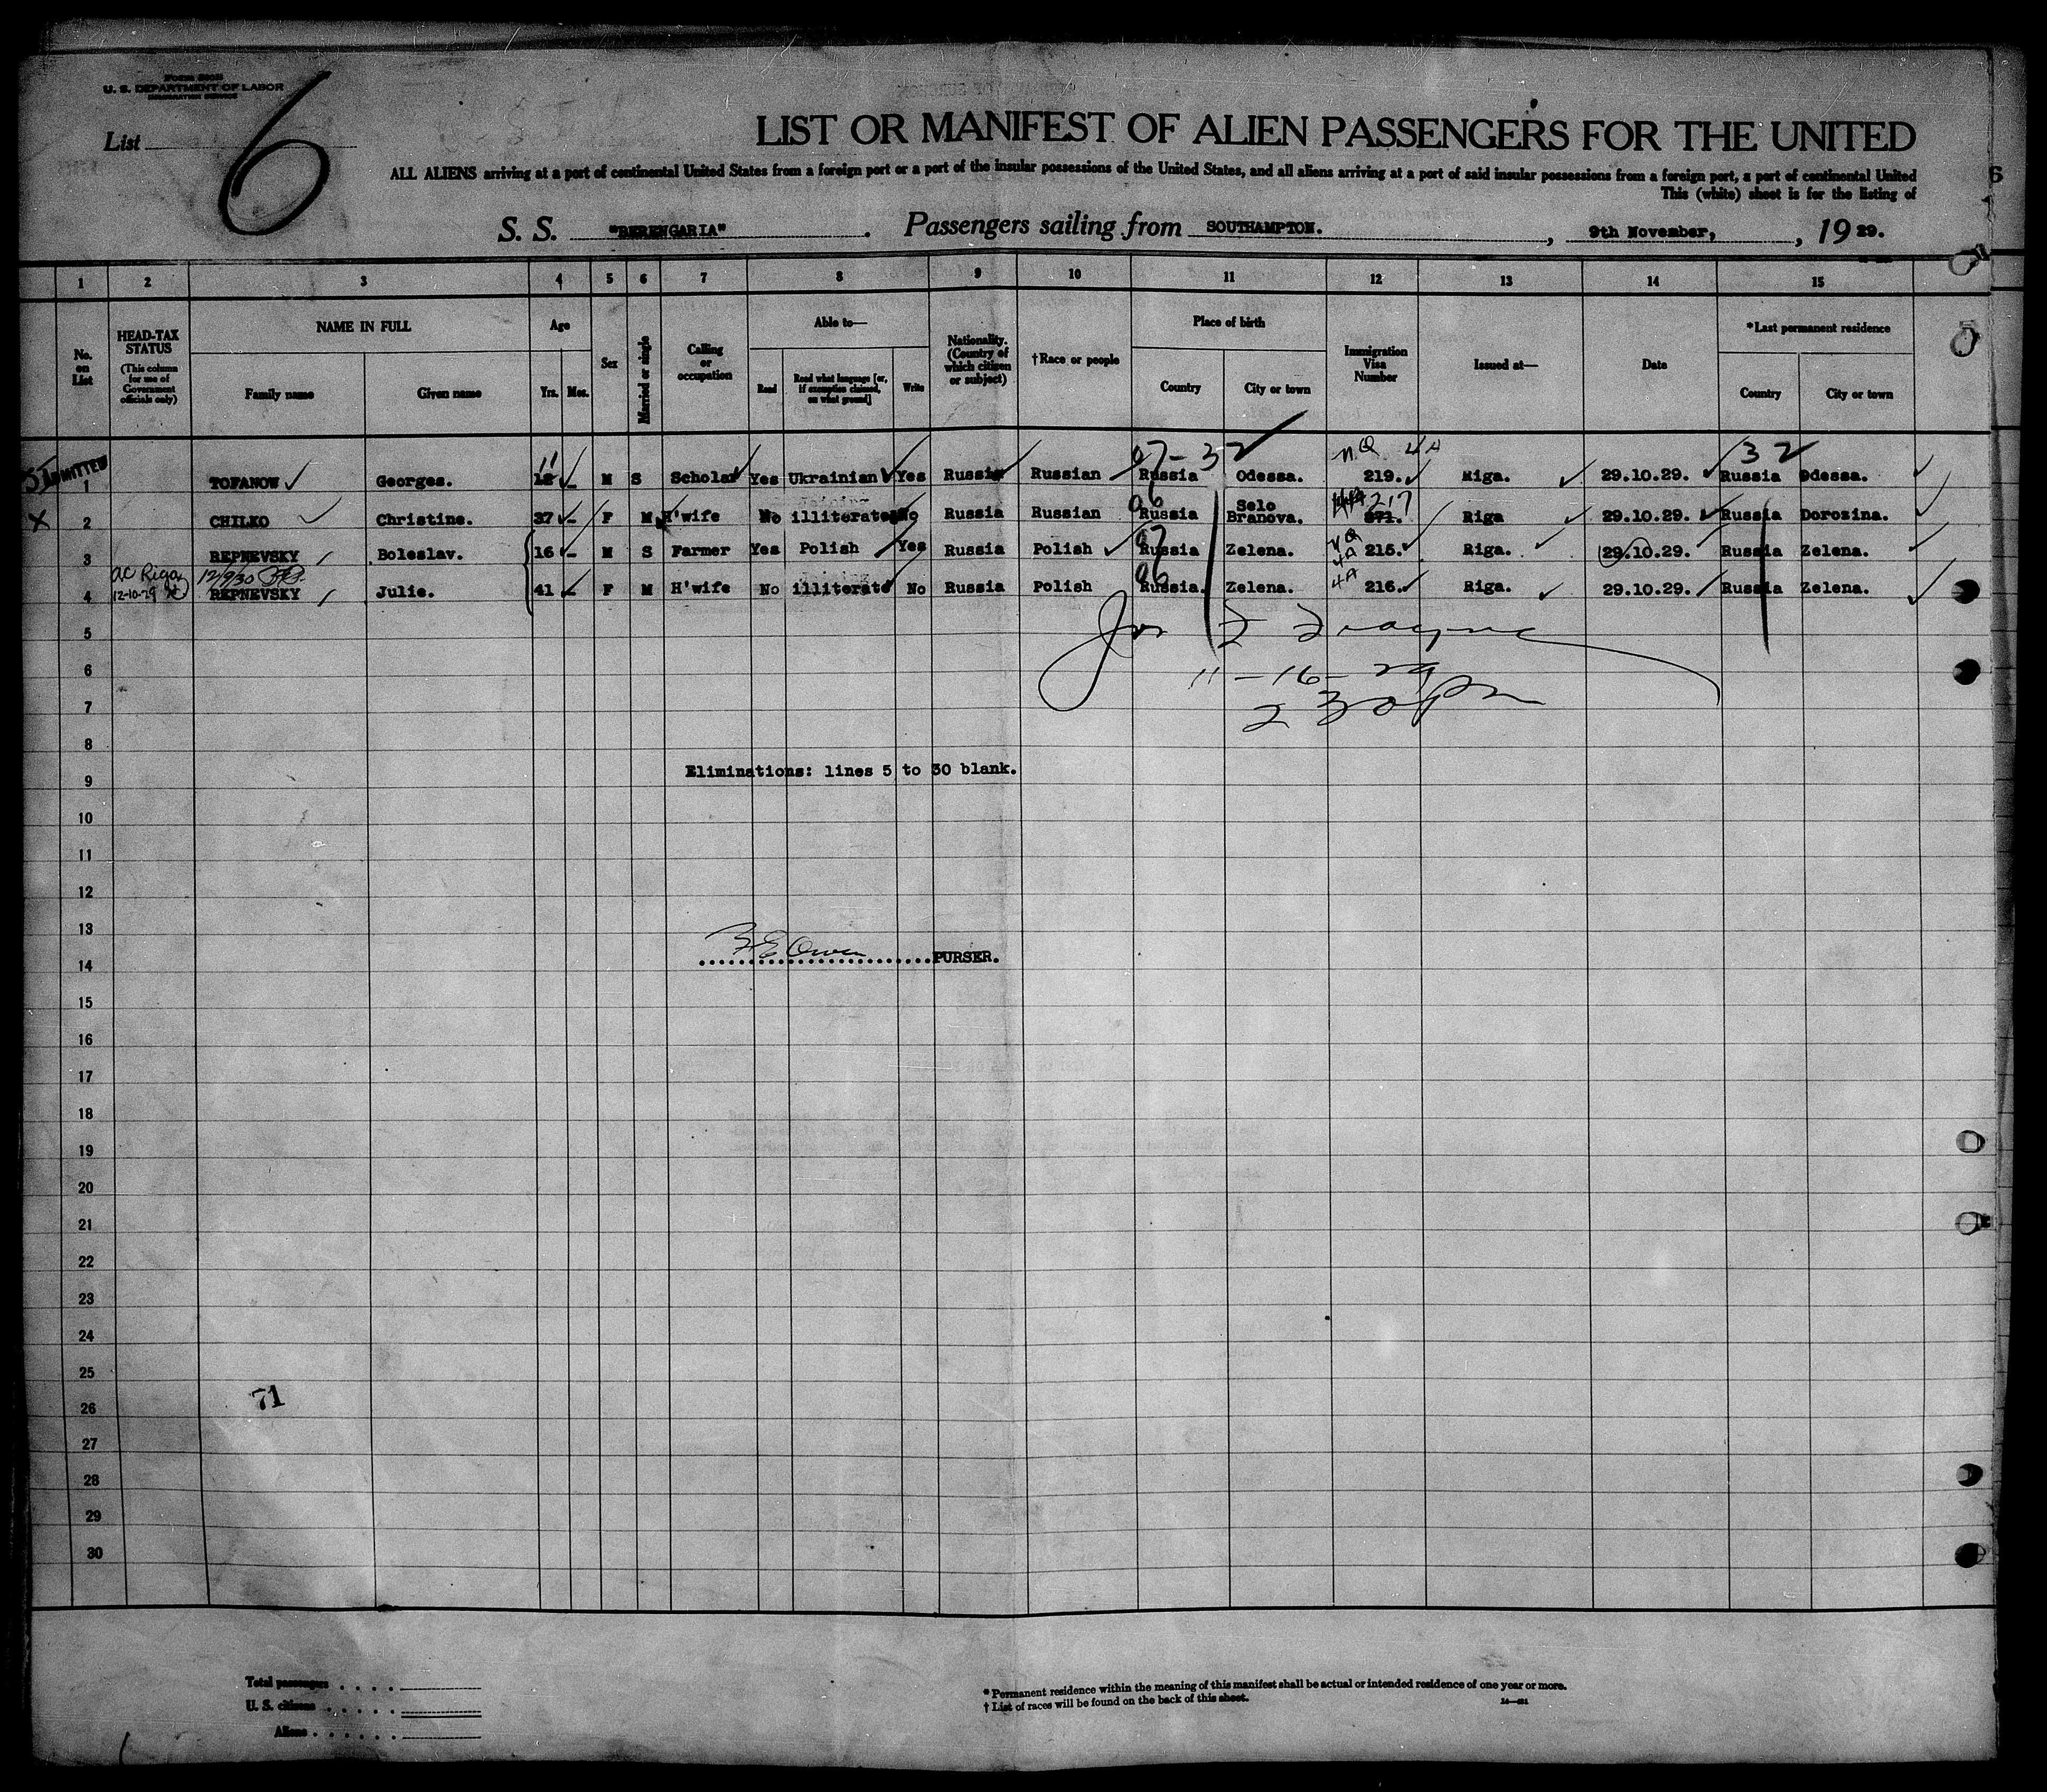 U. S. DEPARTMENT OF LABOR
IMMIGRATION SERVICE
List 6
LIST OR MANIFEST OF ALIEN PASSENGERS FOR THE UNITED
ALL ALIENS arriving at a port of continental United States from a foreign port or a port of the insular possessions of the United States, and all aliens arriving at a port of said insular possessions from a foreign port, a port of continental United
This (white) sheet is for the listing of
S. S. "BERENGARIA". Passengers sailing from SOUTHAMPTON. , 9th November, , 19 29.
1 2 3 4 5 6 7 8 9 10 11 12 13 14 15
No. on List
HEAD-TAX STATUS (This column for use of Government officials only)
NAME IN FULL Family name Given name
Age Yrs. Mos.
Sex
Married or single
Calling or occupation
Able to— Read Read what language [or, if exemption claimed, on what ground] Write
Nationality. (Country of which citizen or subject)
†Race or people
Place of birth Country City or town
Immigration Visa Number
Issued at—
Date
*Last permanent residence Country City or town
ADMITTED
11 97-32 N.Q. 4A 32
1 TOFANOW Georges. 12 M S Scholar Yes Ukrainian Yes Russia Russian Russia Odessa. 219. Riga. 29.10.29. Russia Odessa.
96 217
X 2 CHILKO Christine. 37 F M H'wife No illiterate No Russia Russian Russia Selo Branova. 271. Riga 29.10.29. Russia Dorozina.
97 NQ 4A
3 REPNEVSKY Boleslav. 16 M S Farmer Yes Polish Yes Russia Polish Russia Zelena. 215. Riga. 29.10.29. Russia Zelena.
ac Riga 12/9/30 96 4A
12-10-29
4 REPNEVSKY Julie. 41 F M H'wife No illiterate No Russia Polish Russia. Zelena. 216. Riga. 29.10.29. Russia Zelena.
5
6 11-16-29
7 2 30 pm
8
Eliminations: lines 5 to 30 blank.
9
10
11
12
13
Owen
14 PURSER.
15
16
17
18
19
20
21
22
23
24
25
71
26
27
28
29
30
Total passengers . . . .
U. S. citizens . . . . .
Aliens . . . . . .
* Permanent residence within the meaning of this manifest shall be actual or intended residence of one year or more.
† List of races will be found on the back of this sheet.